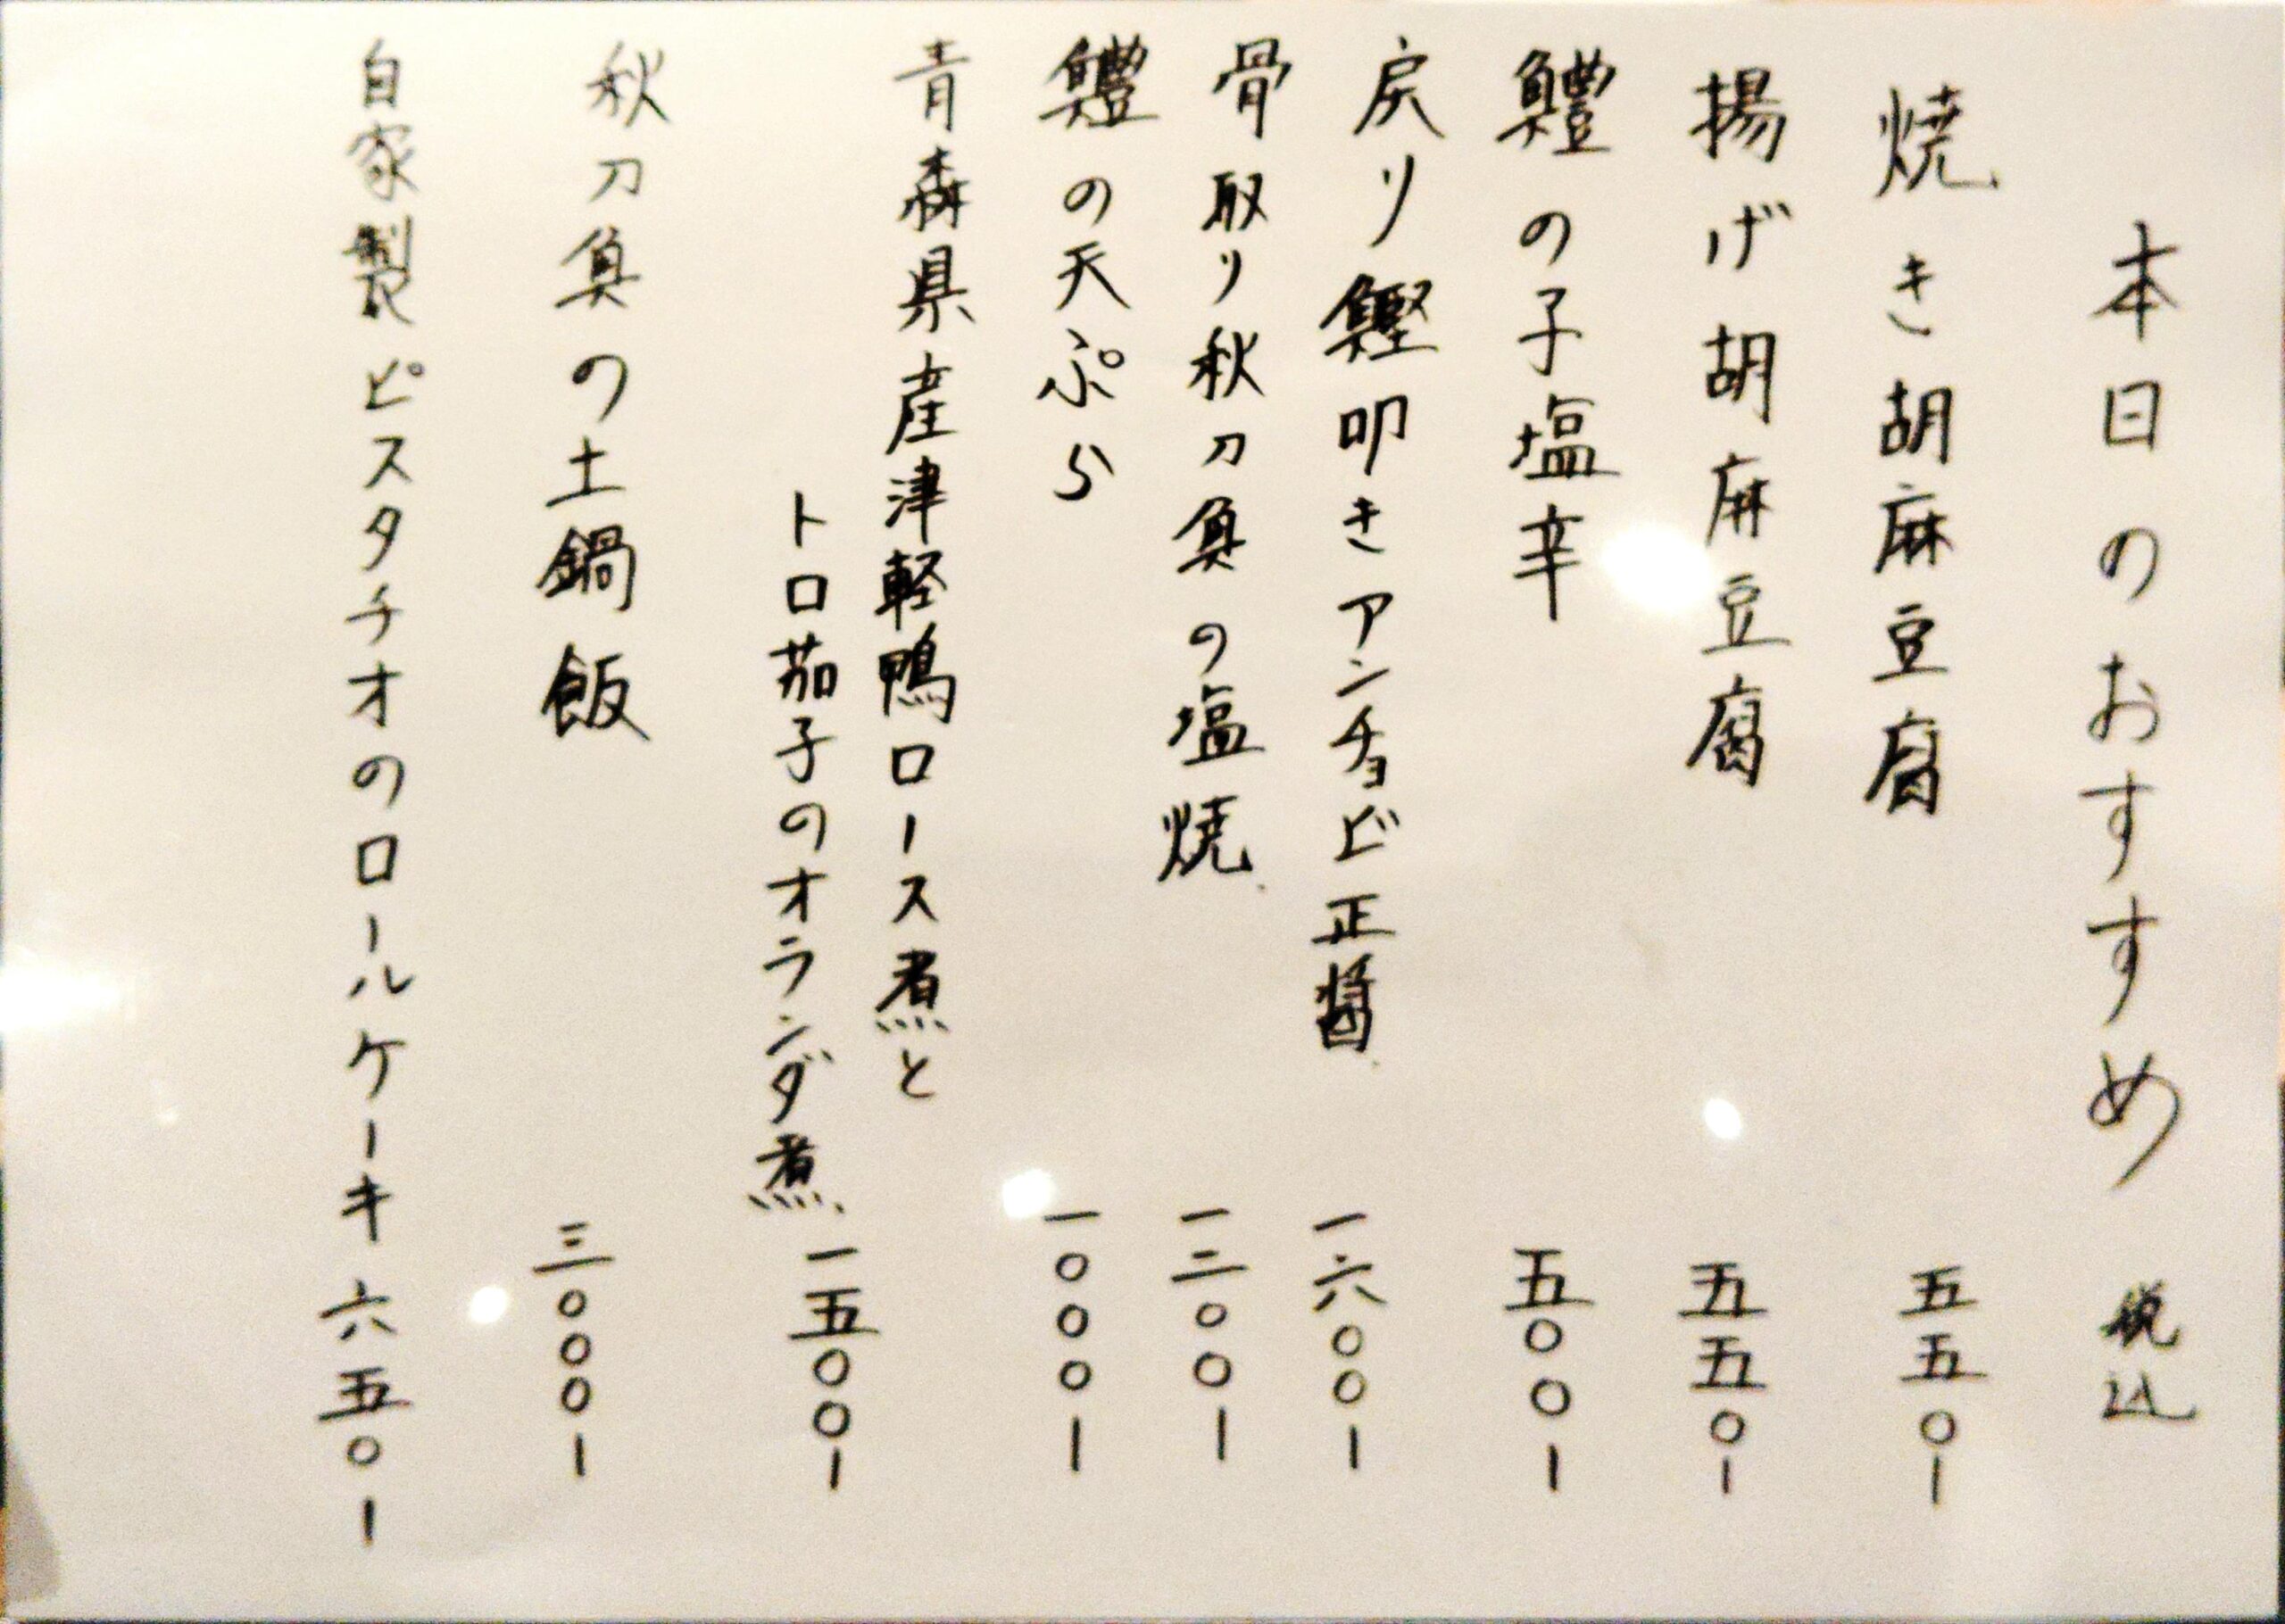 本日のおすすめ 税込
焼き胡麻豆腐 五五〇ー
揚げ胡麻豆腐 五五〇ー
鱧の子塩辛 五〇〇ー
戻り鰹叩きアンチョビ正醤 一六〇〇ー
骨取り秋刀魚の塩焼 一三〇〇ー
鱧の天ぷら 一〇〇〇ー
青森県産津軽鴨ロース煮と
トロ茄子のオランダ煮 一五〇〇ー
秋刀魚の土鍋飯 三〇〇〇ー
自家製ピスタチオのロールケーキ 六五〇ー